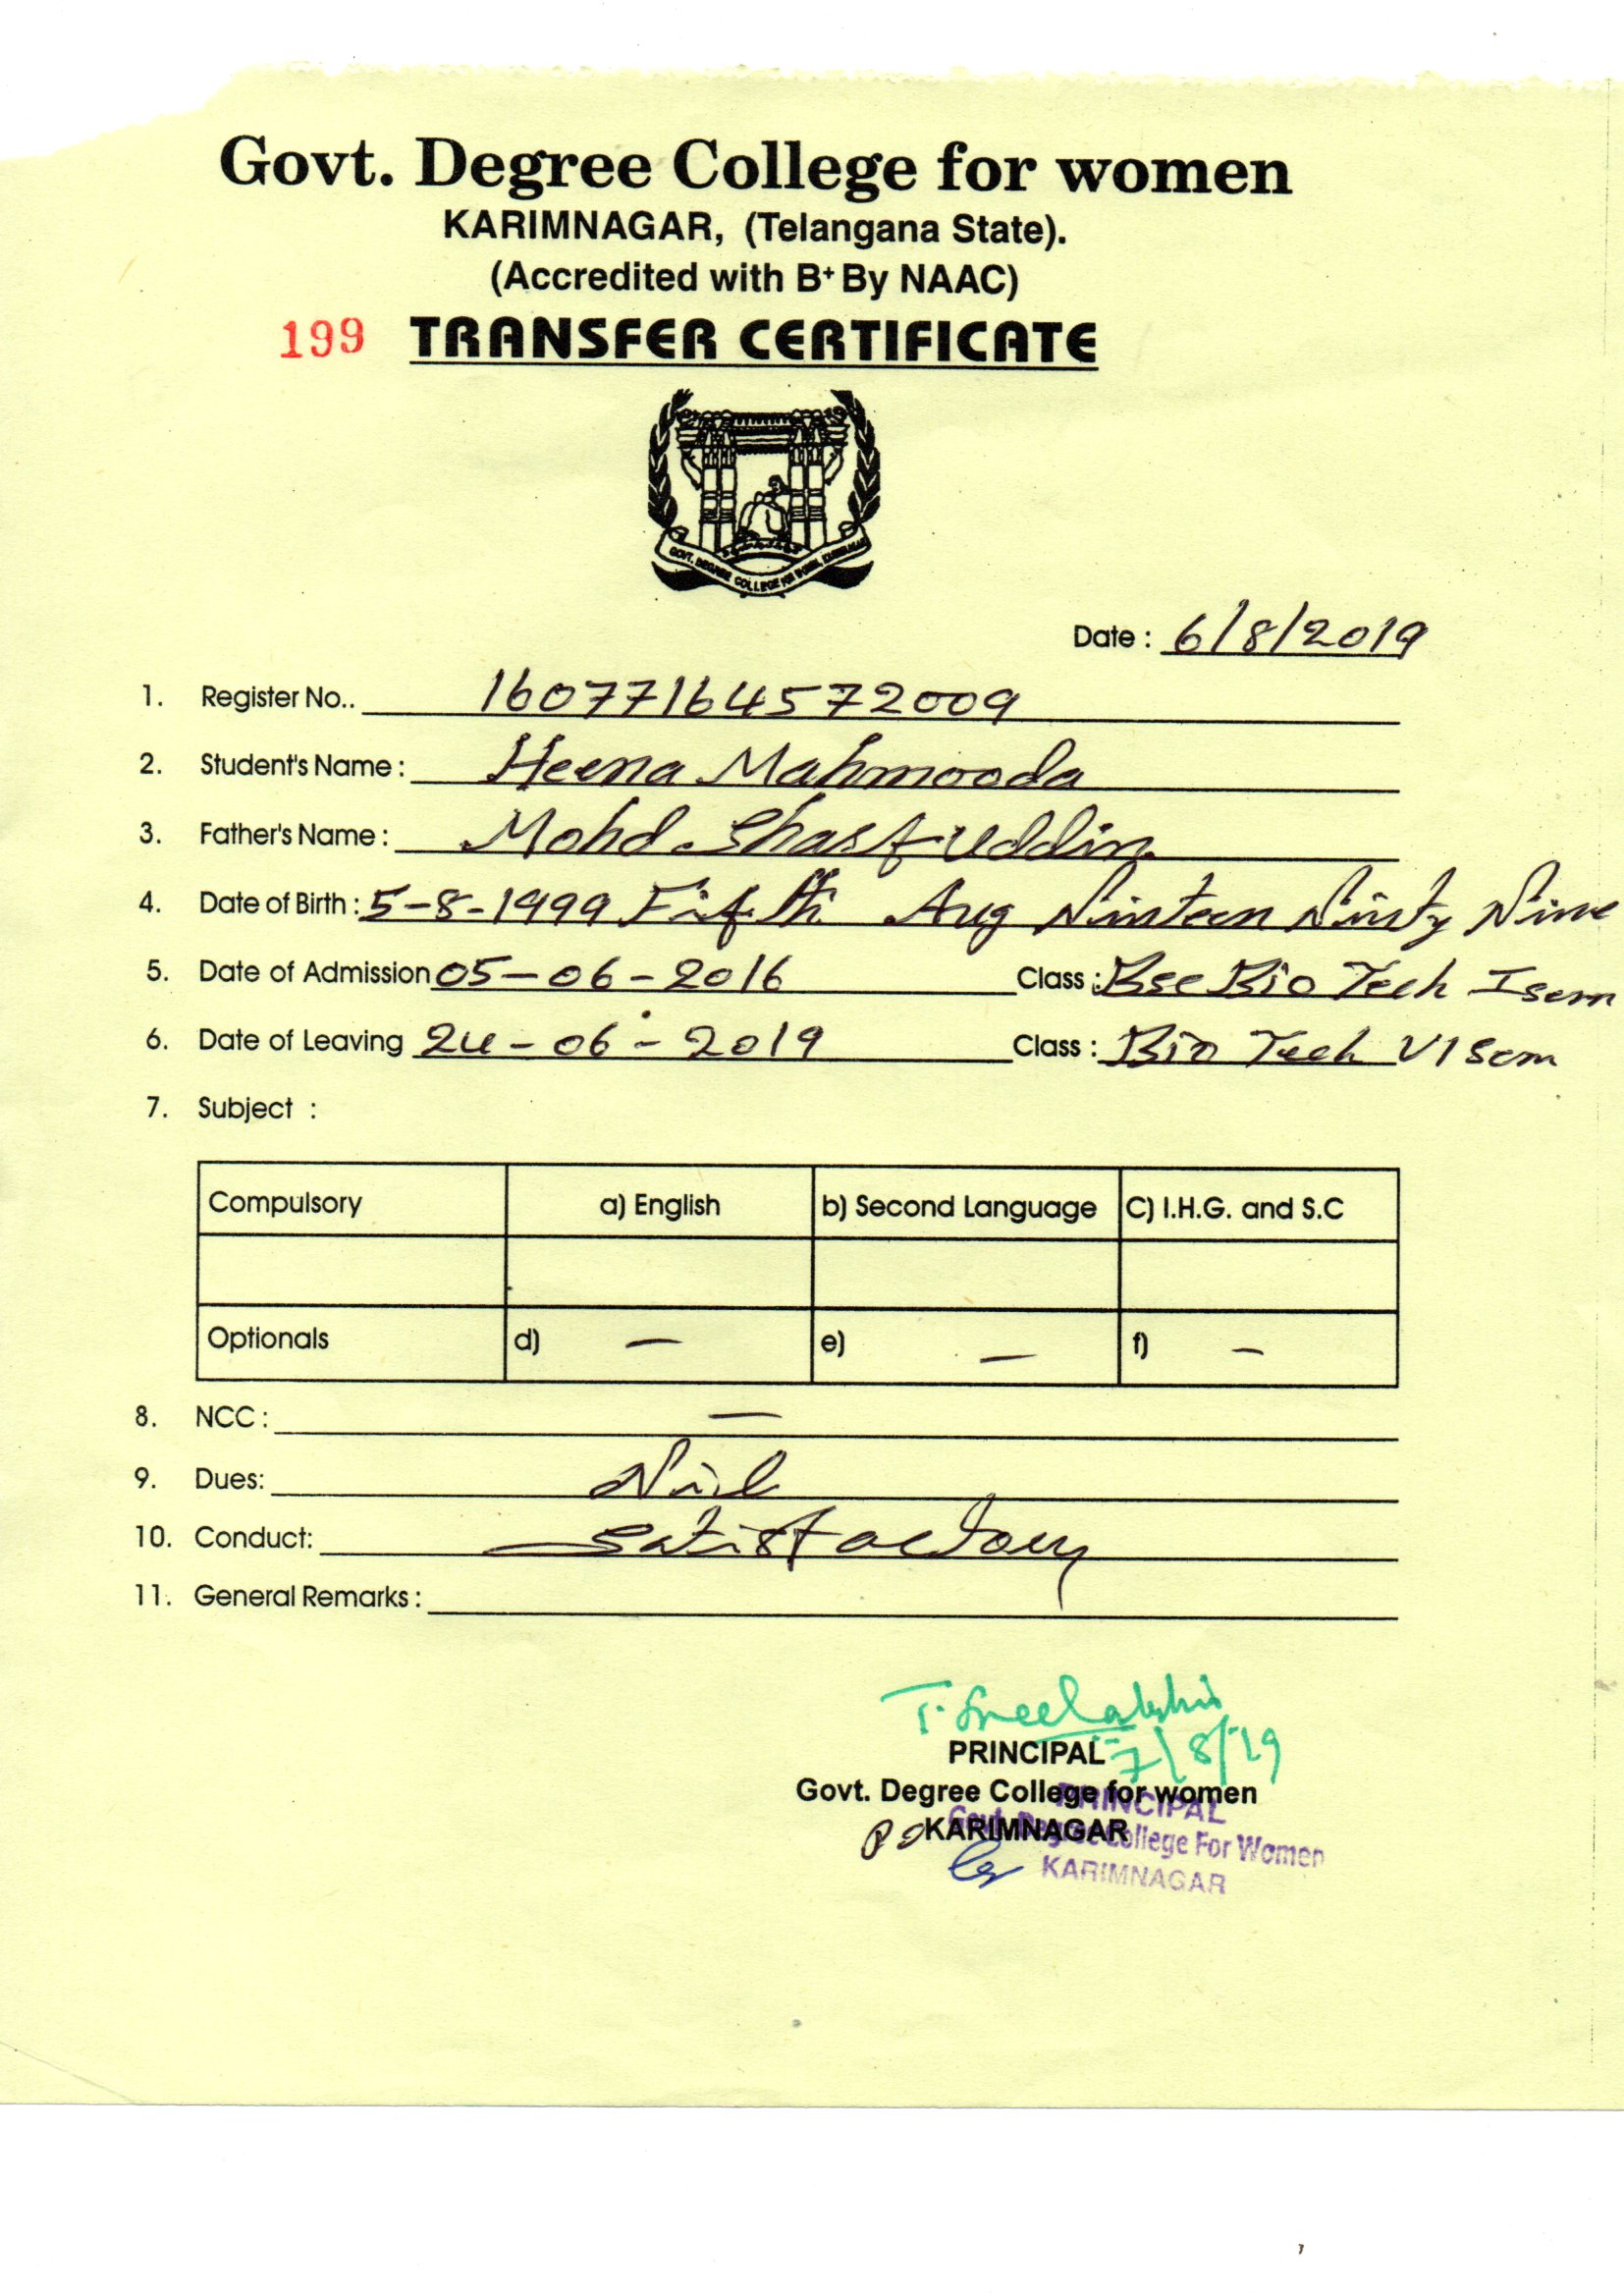 Govt. Degree College for women
KARIMNAGAR, (Telangana State).
(Accredited with B+ By NAAC)
199 TRANSFER CERTIFICATE
GOVT. DEGREE COLLEGE FOR WOMEN, KARIMNAGAR
Date : 6/8/2019
1. Register No.. 160771645 72009
2. Student's Name : Heena Mahmooda
3. Father's Name : Mohd
4. Date of Birth : 5-8-1999 Fifth Aug Ninteen Ninty Nine
5. Date of Admission 05-06-2016 Class : Bsc Bio Tech I sem
6. Date of Leaving 24-06-2019 Class : Bio Tech VI sem
7. Subject :
Compulsory a) English b) Second Language C) I.H.G. and S.C
Optionals d) — e) — f) —
8. NCC : —
9. Dues: Nil
10. Conduct: Satisfactory
11. General Remarks :
PRINCIPAL 7/8/19
Govt. Degree College for women
KARIMNAGAR
PRINCIPAL
Govt. Degree College For Women
KARIMNAGAR